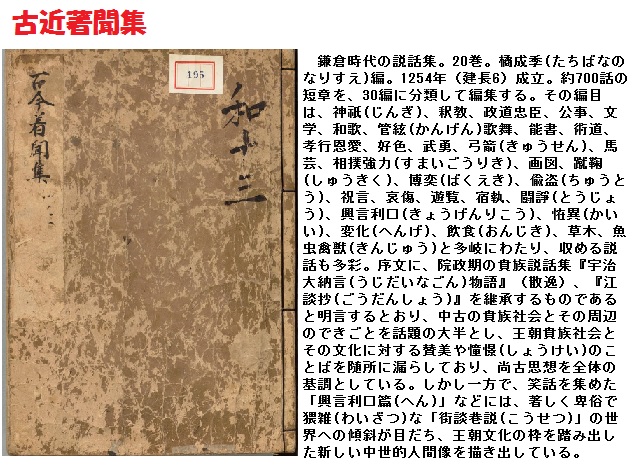 古近著聞集
195
和十三
古今著聞集
鎌倉時代の説話集。20巻。橘成季(たちばなの
なりすえ)編。1254年（建長6）成立。約700話の
短章を、30編に分類して編集する。その編目
は、神祇(じんぎ)、釈教、政道忠臣、公事、文
学、和歌、管絃(かんげん)歌舞、能書、術道、
孝行恩愛、好色、武勇、弓箭(きゅうせん)、馬
芸、相撲強力(すまいごうりき)、画図、蹴鞠
(しゅうきく)、博奕(ばくえき)、偸盗(ちゅうと
う)、祝言、哀傷、遊覧、宿執、闘諍(とうじょ
う)、興言利口(きょうげんりこう)、恠異(かい
い)、変化(へんげ)、飲食(おんじき)、草木、魚
虫禽獣(きんじゅう)と多岐にわたり、収める説
話も多彩。序文に、院政期の貴族説話集『宇治
大納言(うじだいなごん)物語』（散逸）、『江
談抄(ごうだんしょう)』を継承するものである
と明言するとおり、中古の貴族社会とその周辺
のできごとを話題の大半とし、王朝貴族社会と
その文化に対する賛美や憧憬(しょうけい)のこ
とばを随所に漏らしており、尚古思想を全体の
基調としている。しかし一方で、笑話を集めた
「興言利口篇(へん)」などには、著しく卑俗で
猥雑(わいざつ)な「街談巷説(こうせつ)」の世
界への傾斜が目だち、王朝文化の枠を踏み出し
た新しい中世的人間像を描き出している。